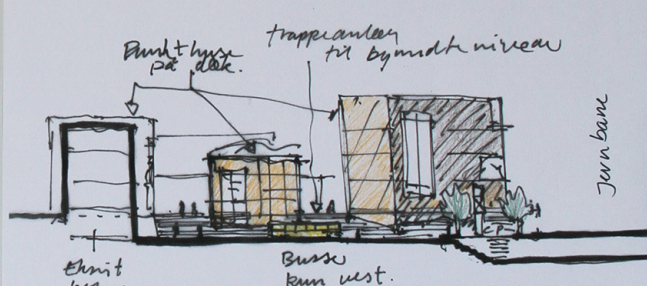 Punkthuse
på dæk.
trappeanlæg
til bymidte niveau
Jernbane
Busse
kun vest.